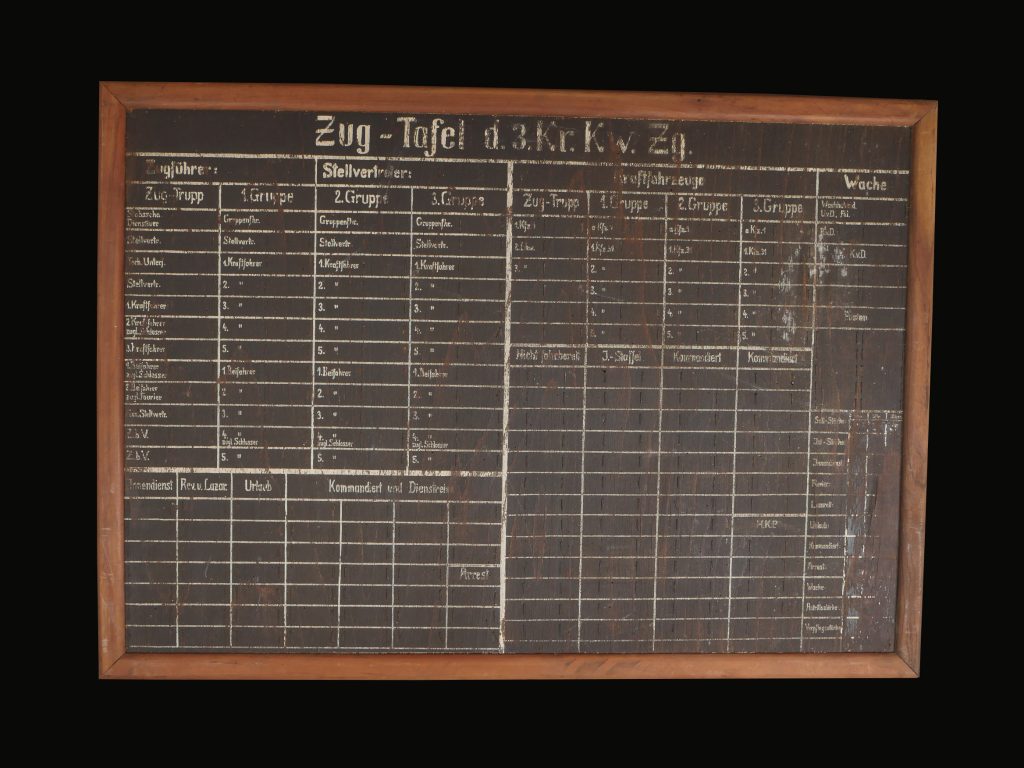 Zug - Tafel d. 3. Kr. Kw. Zg.
Zugführer: Stellvertreter: Kraftfahrzeuge Wache
Zug-Trupp 1. Gruppe 2. Gruppe 3. Gruppe Zug-Trupp 1. Gruppe 2. Gruppe 3. Gruppe
Gruppenfhr. Gruppenfhr. Gruppenfhr. 1. Kfz. 1 a Kfz. 1 a Kfz. 1 a Kfz. 1
Stellvertr. Stellvertr. Stellvertr. Stellvertr. 1. Kfz. 31 1. Kfz. 31
1. Kraftfahrer 1. Kraftfahrer 1. Kraftfahrer 2. " 2. " 2. " 2. "
Stellvertr. 2. " 2. " 2. " 3. " 3. " 3. "
1. Kraftfahrer 3. " 3. " 3. " 4. " 4. " 4. "
2. Kraftfahrer zugl. Schlosser 4. " 4. " 4. " 5. " 5. " 5. "
3. Kraftfahrer 5. " 5. " 5. " Nicht fahrbereit J.-Staffel Kommandiert Kommandiert
1. Beifahrer zugl. Schlosser 1. Beifahrer 1. Beifahrer 1. Beifahrer
2. Beifahrer zugl. Fourier 2. " 2. " 2. "
3. " 3. " 3. "
Z.b.V. 4. " zugl. Schlosser 4. " zugl. Schlosser 4. " zugl. Schlosser
Z.b.V. 5. " 5. " 5. "
Innendienst Rev. u. Lazar. Urlaub Kommandiert und Dienstreise
Arrest
H.K.P.
Soll-Stärke
Ist-Stärke
Innendienst
Revier
Lazarett
Urlaub
Kommandiert
Arrest
Wache